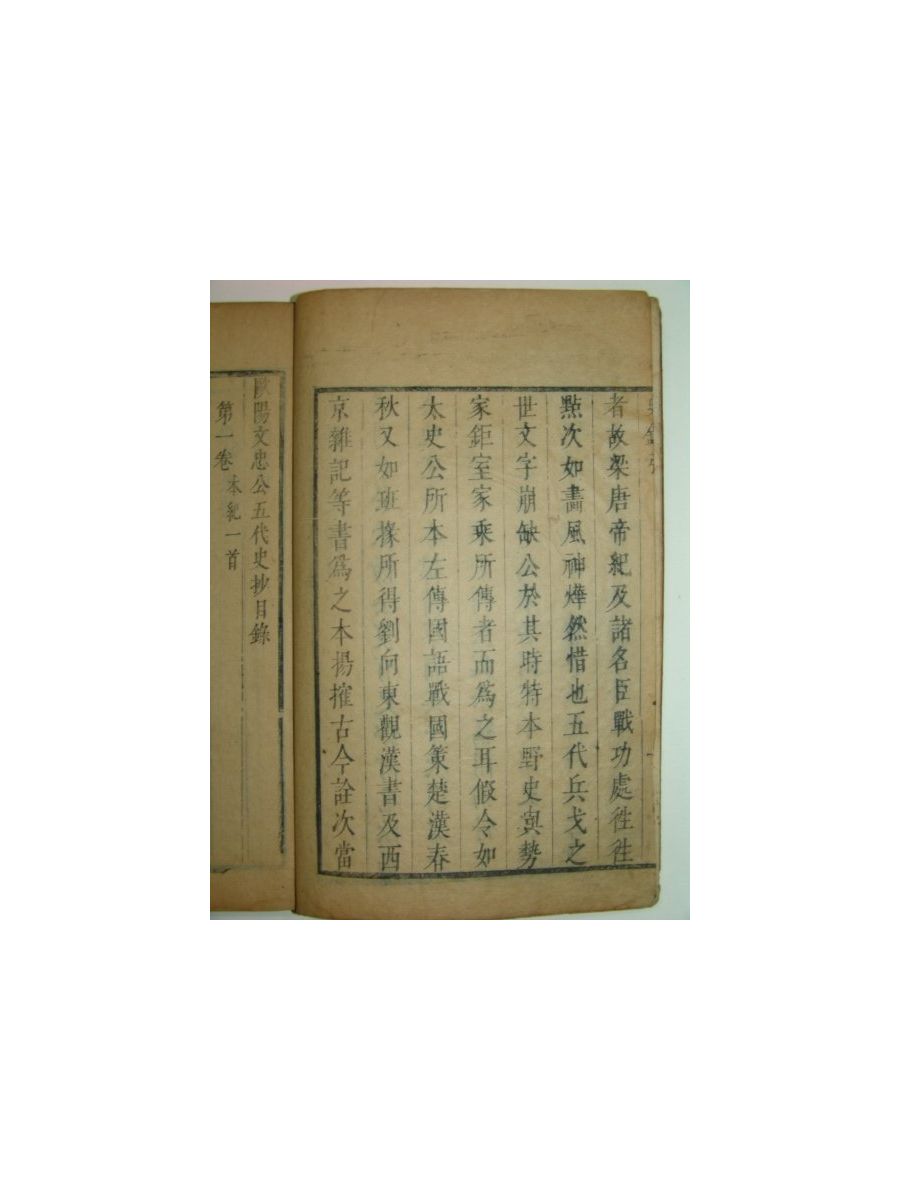 者故梁唐帝紀及諸名臣戰功處徃徃
點次如畵風神燁然惜也五代兵戈之
世文字崩缺公於其時特本野史與勢
家鉅室家乘所傳者而爲之耳假令如
太史公所本左傳國語戰國策楚漢春
秋又如班掾所得劉向東觀漢書及西
京雜記等書爲之本揚搉古今詮次當
歐陽文忠公五代史抄目錄
第一卷 本紀一首